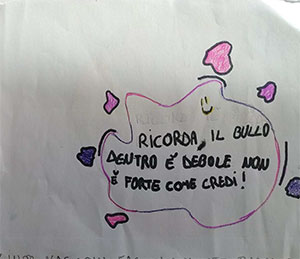 RICORDA, IL BULLO
DENTRO É DEBOLE NON
É FORTE COME CREDI!